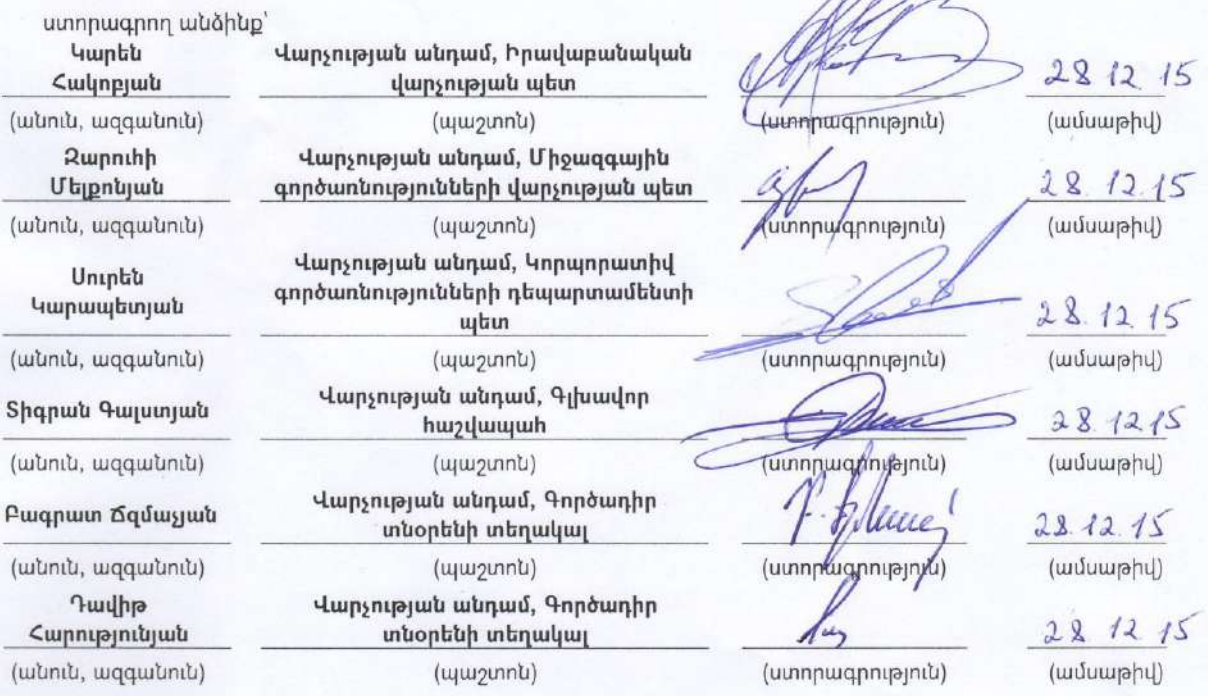 ստորագրող անձինք՝
Կարեն Վարչության անդամ, Իրավաբանական
Հակոբյան վարչության պետ 28 12 15
(անուն, ազգանուն) (պաշտոն) (ստորագրություն) (ամսաթիվ)
Զարուհի Վարչության անդամ, Միջազգային
Մելքոնյան գործառնությունների վարչության պետ 28.12.15
(անուն, ազգանուն) (պաշտոն) (ստորագրություն) (ամսաթիվ)
Վարչության անդամ, Կորպորատիվ
Սուրեն գործառնությունների դեպարտամենտի
Կարապետյան պետ 28.12.15
(անուն, ազգանուն) (պաշտոն) (ստորագրություն) (ամսաթիվ)
Տիգրան Գալստյան Վարչության անդամ, Գլխավոր
հաշվապահ 28.12.15
(անուն, ազգանուն) (պաշտոն) (ստորագրություն) (ամսաթիվ)
Բագրատ Ճզմաչյան Վարչության անդամ, Գործադիր
տնօրենի տեղակալ 28.12.15
(անուն, ազգանուն) (պաշտոն) (ստորագրություն) (ամսաթիվ)
Դավիթ Վարչության անդամ, Գործադիր
Հարությունյան տնօրենի տեղակալ 28 12 15
(անուն, ազգանուն) (պաշտոն) (ստորագրություն) (ամսաթիվ)